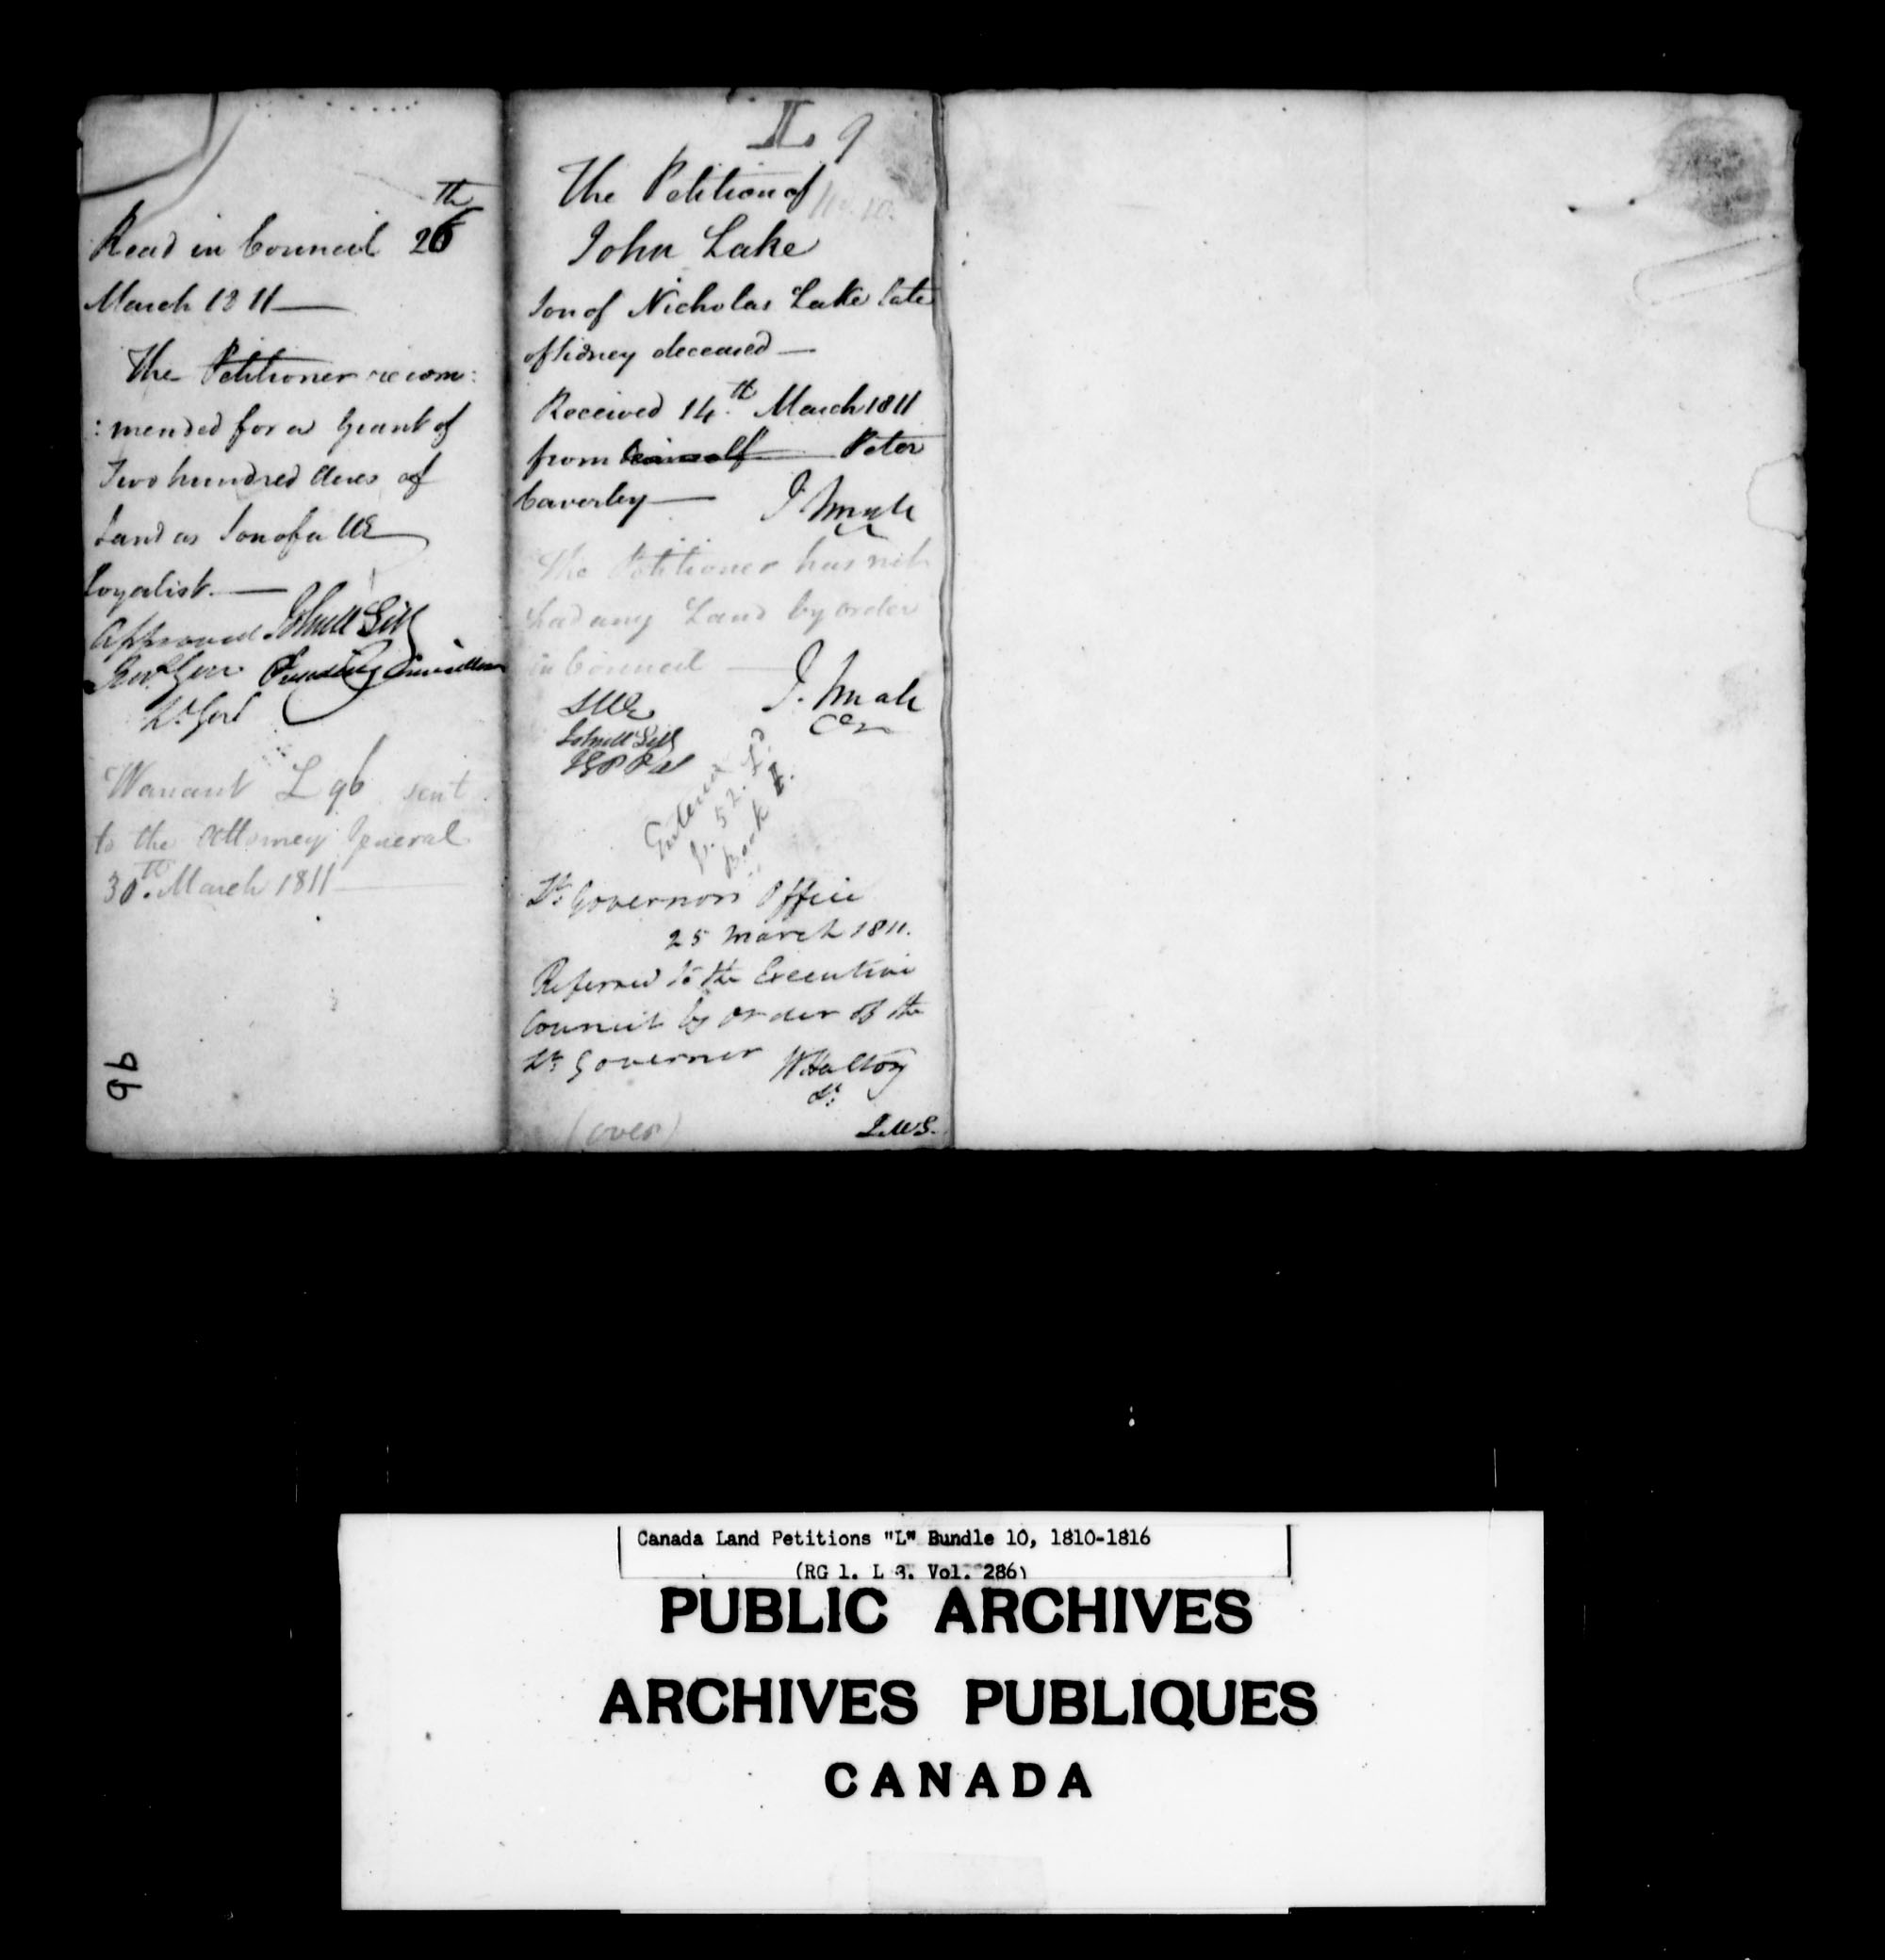 Read in Council 26th
March 1811
The Petitioner recom:
:mended for a Grant of
Two hundred Acres of
Land as Son of a UE
Loyalist.
Approved
Presiding Councillor
Lt Govr
Warrant L 96 sent
to the Attorney General
30th. March 1811
96
L 9
The Petition of
No. 10.
John Lake
Son of Nicholas Lake late
of Sidney deceased
Received 14.th March 1811
from himself Peter
Caverley J Small
The Petitioner has not
had any Land by order
in Council
J. Small
Entered
p. 52.
Book I.
Lt: Governors Office
25 March 1811.
Referred to the Executive
Council by order of the
Lt: Governor W Halton
Sy:
(over)
Canada Land Petitions "L" Bundle 10, 1810-1816
(RG 1, L 3, Vol. 286)
PUBLIC ARCHIVES
ARCHIVES PUBLIQUES
CANADA